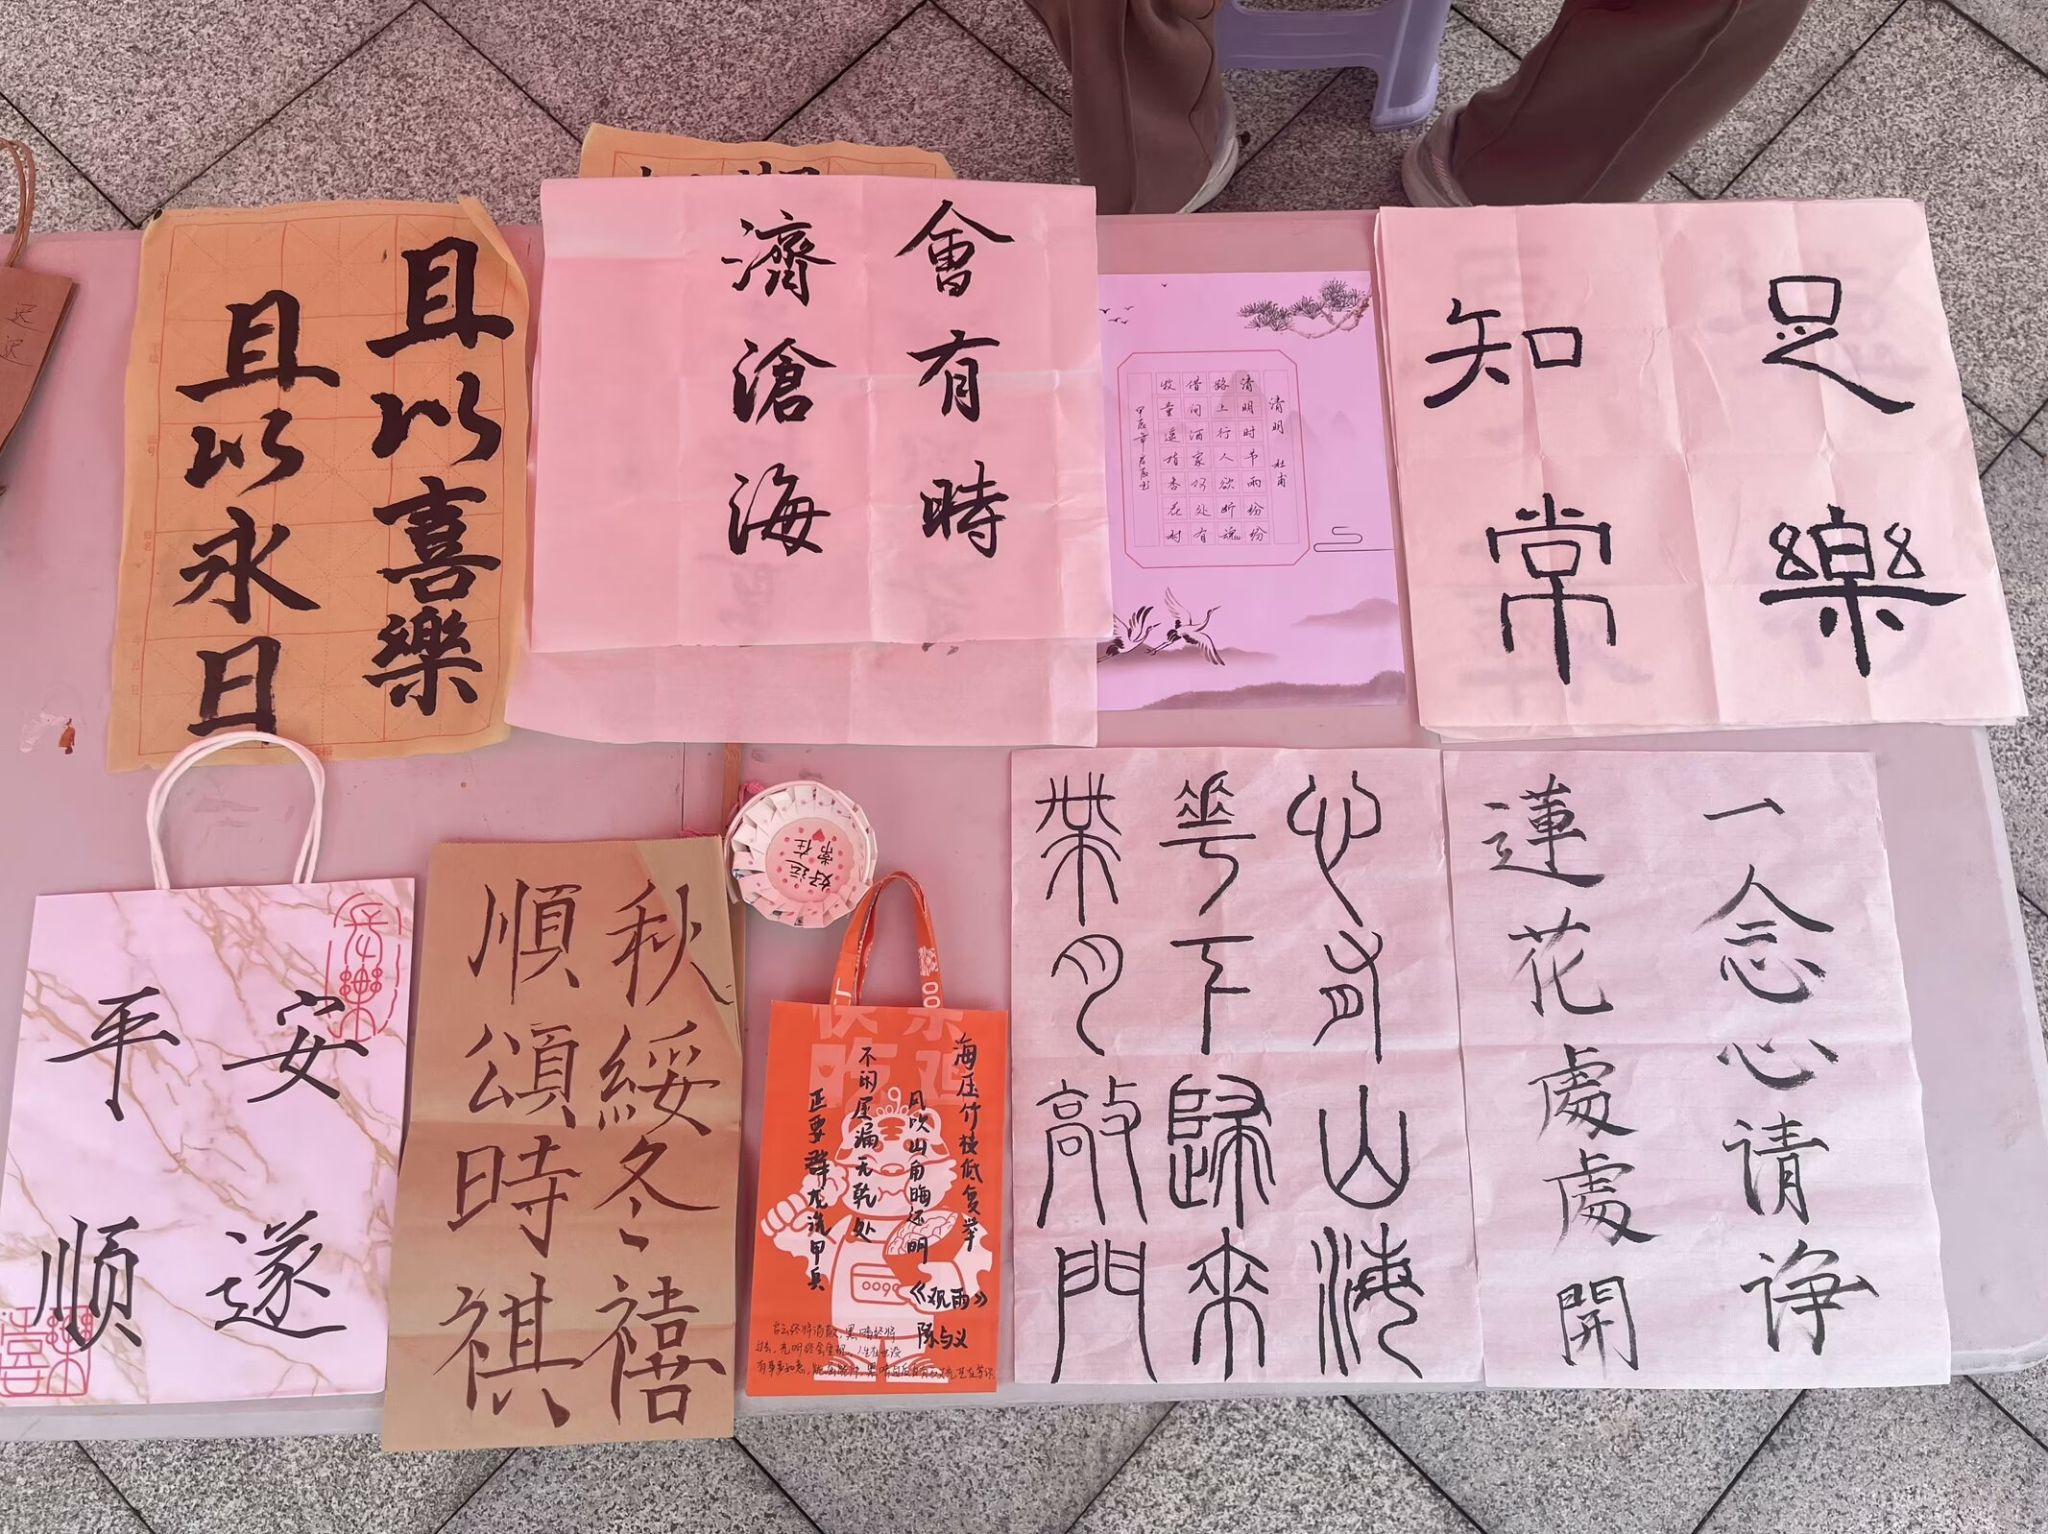 且以喜樂
且以永日
會有時
濟滄海
清明 杜甫
清明时节雨纷纷
路上行人欲断魂
借问酒家何处有
牧童遥指杏花村
足樂
知常
安遂
平順
秋綏冬禧
順頌時祺
好运
常在
海压竹枝低复举
风吹山角晦还明
不闲屋漏无乾处
正要群龙洗甲兵
《观雨》
陈与义
心有山海
花下歸來
業月敲門
一念心请诤
蓮花處處開